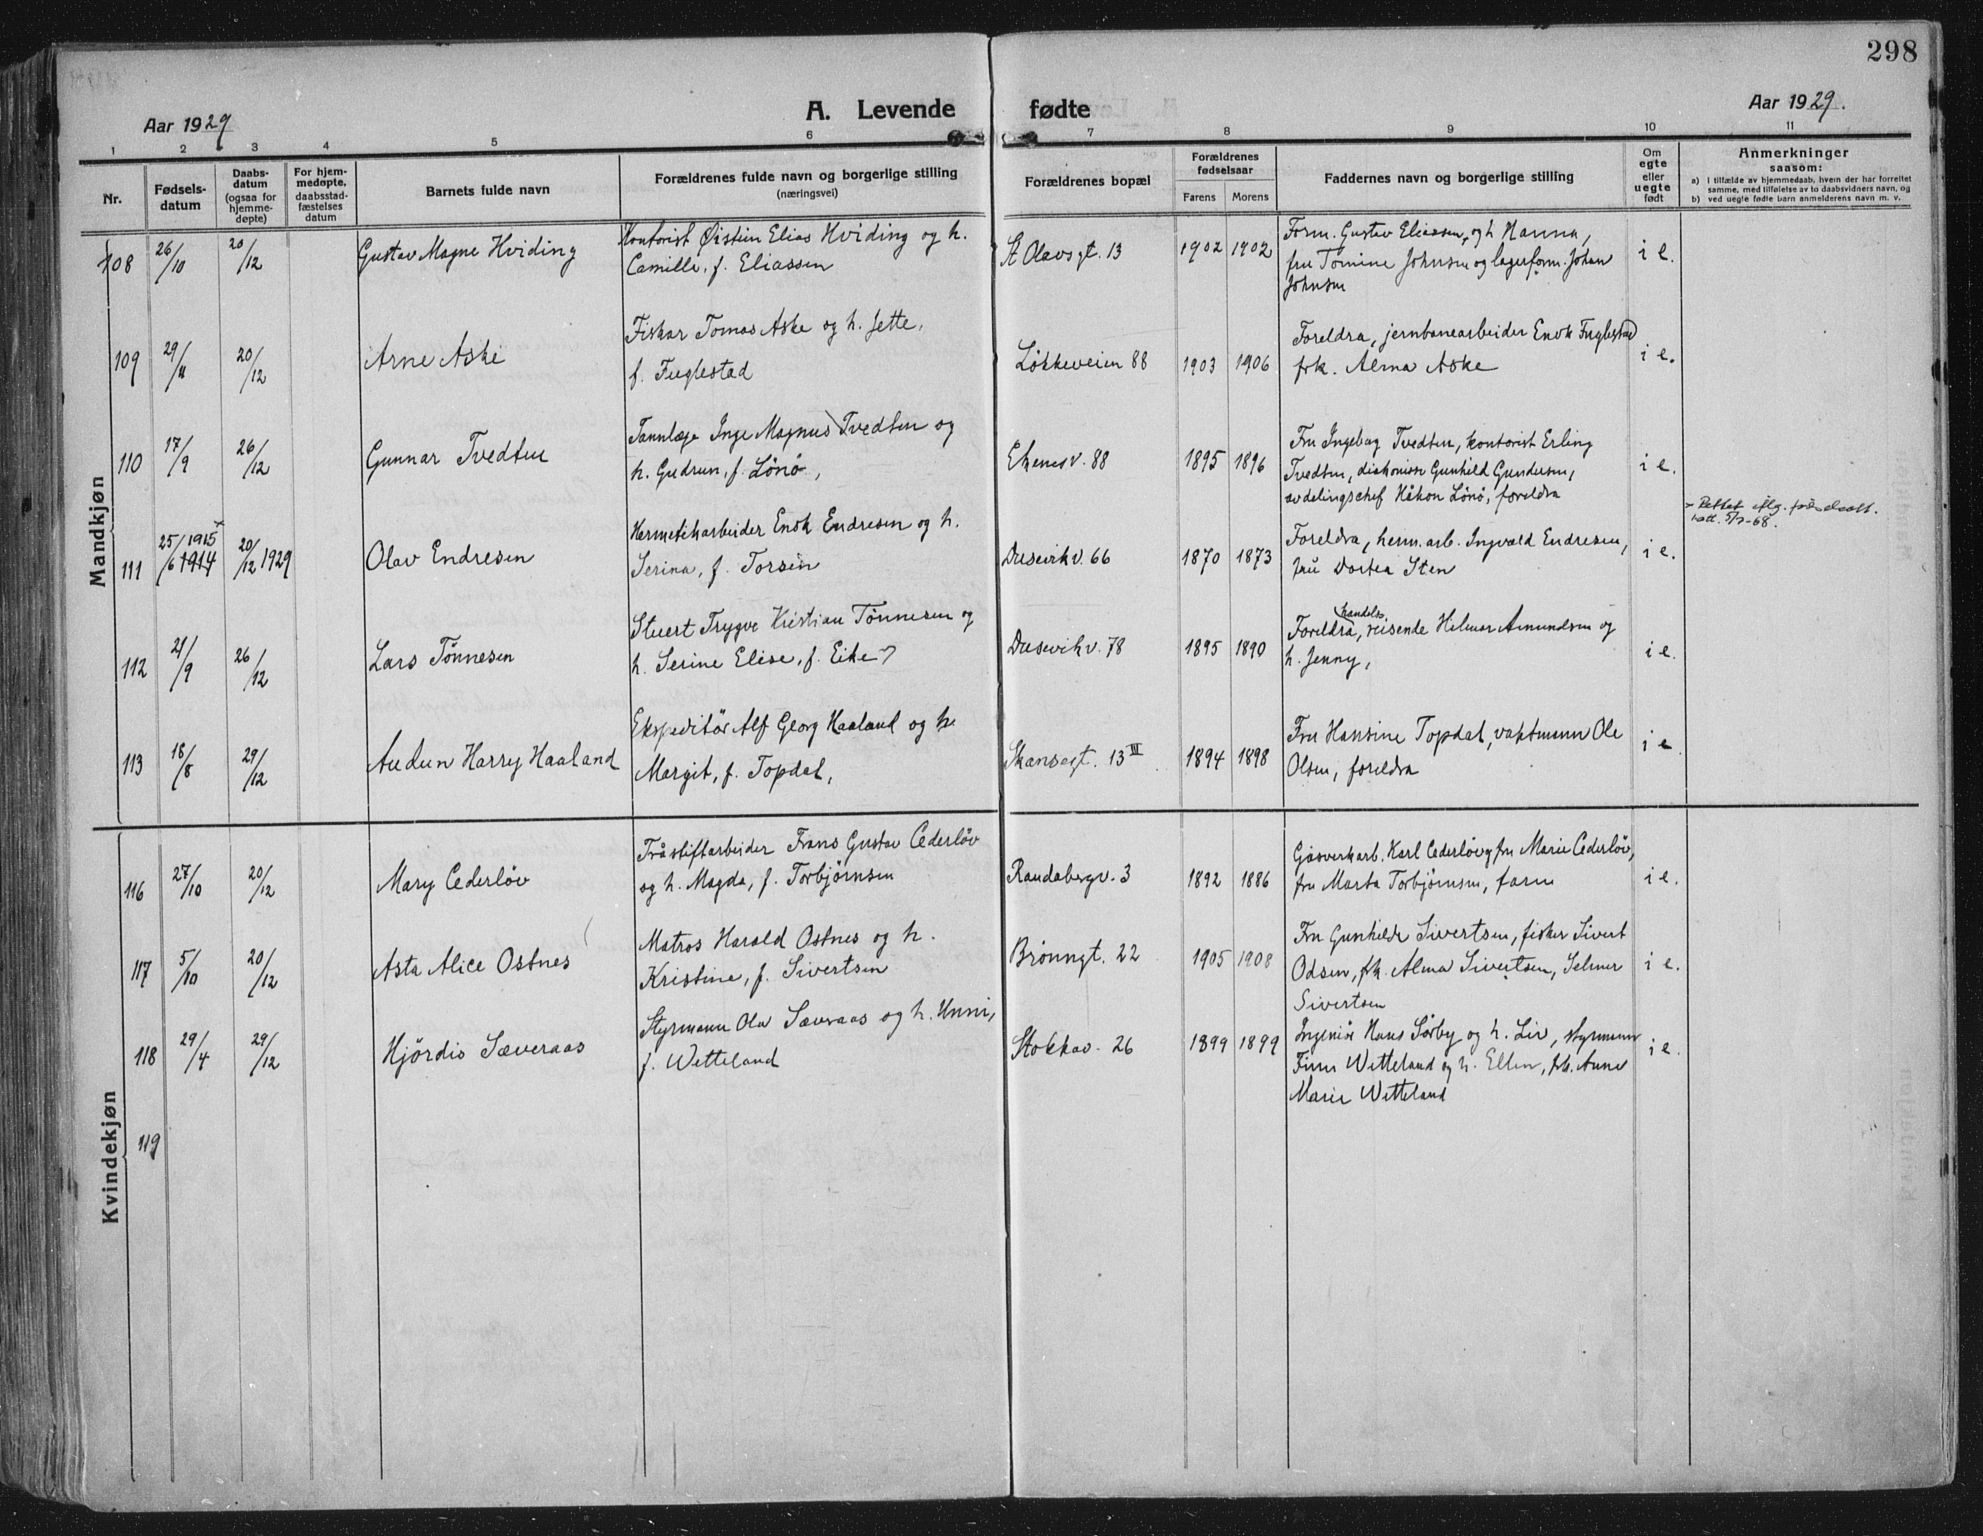 298
A. Levende fødte
Aar 1929
Aar 1929.
1 2 3 4 5 6 7 8 9 10 11
Nr.
Fødsels-
datum
Daabs-
datum
(ogsaa for
hjemme-
døpte)
For hjem-
medøpte,
daabsstad-
fæstelses
datum
Barnets fulde navn
Forældrenes fulde navn og borgerlige stilling
(næringsvei)
Forældrenes bopæl
Forældrenes
fødselsaar
Farens Morens
Faddernes navn og borgerlige stilling
Om
egte
eller
uegte
født
Anmerkninger
saasom:
a) I tilfælde av hjemmedaab, hvem der har forrettet
samme, med tilføielse av to daabsvidners navn, og
b) ved uegte fødte barn anmelderens navn m. v.
Mandkjøn
108 26/10 20/12 Gustav Magne Hviding
Kontorist Øistein Elias Hviding og h.
Camilla, f. Eliassen
St Olavsgt. 13 1902 1902
Form. Gustav Eliassen og h Hanna,
fru Tomine Johnsen og lagerform. Johan
Johnsen
i e.
109 29/11 20/12 Arne Aske
Fiskar Tomas Aske og h. Jette,
f. Fuglestad
Løkkeveien 88 1903 1906
Foreldra, jernbanearbeider Enok Fuglestad
frk. Alma Aske
i e.
110 17/9 26/12 Gunnar Tvedten
Tannlæge Inge Magnus Tvedten og
h. Gudrun, f. Lönö,
Ekenesv. 88 1895 1896
Fru Ingeborg Tvedten, kontorist Erling
Tvedten, diakonisse Gunhild Gundersen,
avdelingschef Håkon Lönö, foreldra
i e.
111 25/6 1915 x 1914 20/12 1929 Olav Endresen
Hermetikarbeider Enok Endresen og h.
Serina, f. Torsen
Dusevikv. 66 1870 1873
Foreldra, herm. arb. Ingvald Endresen,
fru Dortea Sten
i e.
x Rettet iflg. fødselsatt.
7-68.
112 21/9 26/12 Lars Tönnesen
Stuert Trygve Kristian Tönnesen og
h. Serine Elise, f. Eike
Dusevikv. 78 1895 1890
Foreldra, handels reisende Hilmar Amundsen og
h. Jenny,
i e.
113 18/8 29/12 Audun Harry Haaland
Ekspeditör Alf Georg Haaland og h.
Margit, f. Topdal,
Skansegt. 13 III 1894 1898
Fru Hansine Topdal, vaktmann Ole
Olsen, foreldra
i e
Kvindekjøn
116 27/10 20/12 Mary Cederlöv
Tråstiftarbeider Frans Gustav Cederlöv
og h. Magda, f. Torbjörnsen
Randabergv. 3 1892 1886
Gasverkarb. Karl Cederlöv og fru Marie Cederlöv,
fru Marta Torbjörnsen, faren
i e.
117 5/10 20/12 Asta Alice Ostnes
Matros Harald Ostnes og h.
Kristine, f. Sivertsen
Brönngt. 22 1905 1908
Fru Gunhilde Sivertsen, fisker Sivert
Odsen, frk. Alma Sivertsen, Selmer
Sivertsen
i e.
118 29/4 29/12 Hjördis Sæveraas
Styrmann Olav Sæveraas og h. Unni,
f. Wetteland
Stokkav. 26 1899 1899
Ingeniör Hans Sörby og h. Liv, styrmann
Finn Wetteland og h. Ellen, frk. Anne
Marie Wetteland
i e.
119